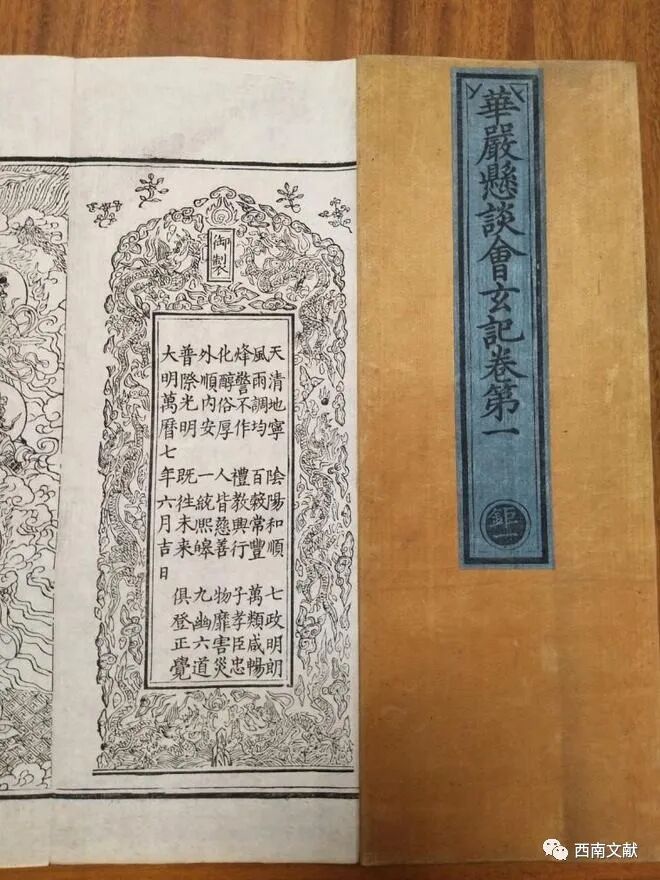 華嚴懸談會玄記卷第一
鉅一
御製
天清地寧 陰陽和順 七政明朗
風雨調均 百穀常豐 萬類咸暢
烽警不作 禮教興行 子孝臣忠
化醇俗厚 人皆慈善 物靡害災
外順內安 一統熙皞 九幽六道
普際光明 既往未來 俱登正覺
大明萬曆七年六月吉日
西南文献